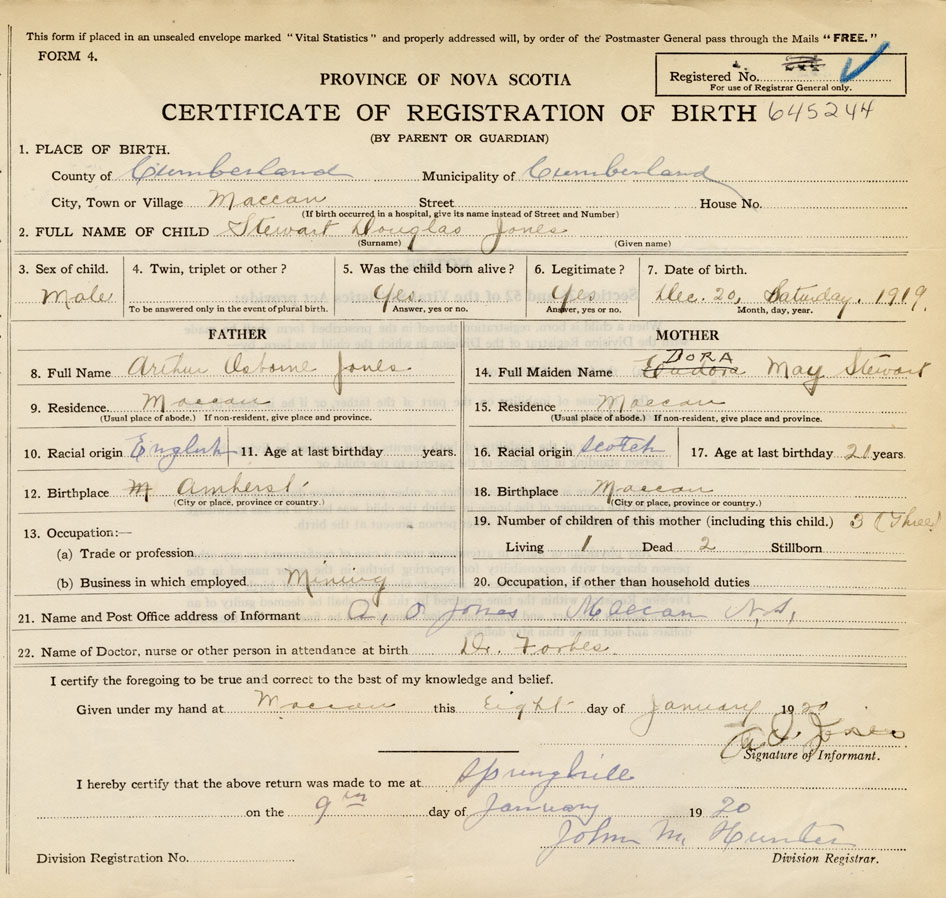 This form if placed in an unsealed envelope marked "Vital Statistics" and properly addressed will, by order of the Postmaster General pass through the Mails "FREE."
FORM 4.
PROVINCE OF NOVA SCOTIA
Registered No.
For use of Registrar General only.
CERTIFICATE OF REGISTRATION OF BIRTH 645244
(BY PARENT OR GUARDIAN)
1. PLACE OF BIRTH.
County of Cumberland Municipality of Cumberland
City, Town or Village Maccan Street House No.
(If birth occurred in a hospital, give its name instead of Street and Number)
2. FULL NAME OF CHILD Stewart Douglas Jones
(Surname) (Given name)
3. Sex of child. 4. Twin, triplet or other? 5. Was the child born alive? 6. Legitimate? 7. Date of birth.
Male Yes. Yes Dec. 20, Saturday. 1919
To be answered only in the event of plural birth. Answer, yes or no. Answer, yes or no. Month, day, year.
FATHER
8. Full Name Arthur Osborne Jones
9. Residence. Maccan
(Usual place of abode.) If non-resident, give place and province.
10. Racial origin English 11. Age at last birthday years.
12. Birthplace M Amherst
(City or place, province or country.)
13. Occupation:—
(a) Trade or profession
(b) Business in which employed Mining
MOTHER
DORA
14. Full Maiden Name May Stewart
15. Residence Maccan
(Usual place of abode.) If non-resident, give place and province.
16. Racial origin Scotch 17. Age at last birthday years.
18. Birthplace Maccan
(City or place, province or country.)
19. Number of children of this mother (including this child.) 3 (Three)
Living 1 Dead 2 Stillborn
20. Occupation, if other than household duties
21. Name and Post Office address of Informant A. O Jones Maccan N.S,
22. Name of Doctor, nurse or other person in attendance at birth Dr. Forbes.
I certify the foregoing to be true and correct to the best of my knowledge and belief.
Given under my hand at Maccan this Eight day of January 1920
A.O. Jones
Signature of Informant.
I hereby certify that the above return was made to me at Springhill
on the 9th day of January 1920
John M. Hunter
Division Registration No. Division Registrar.